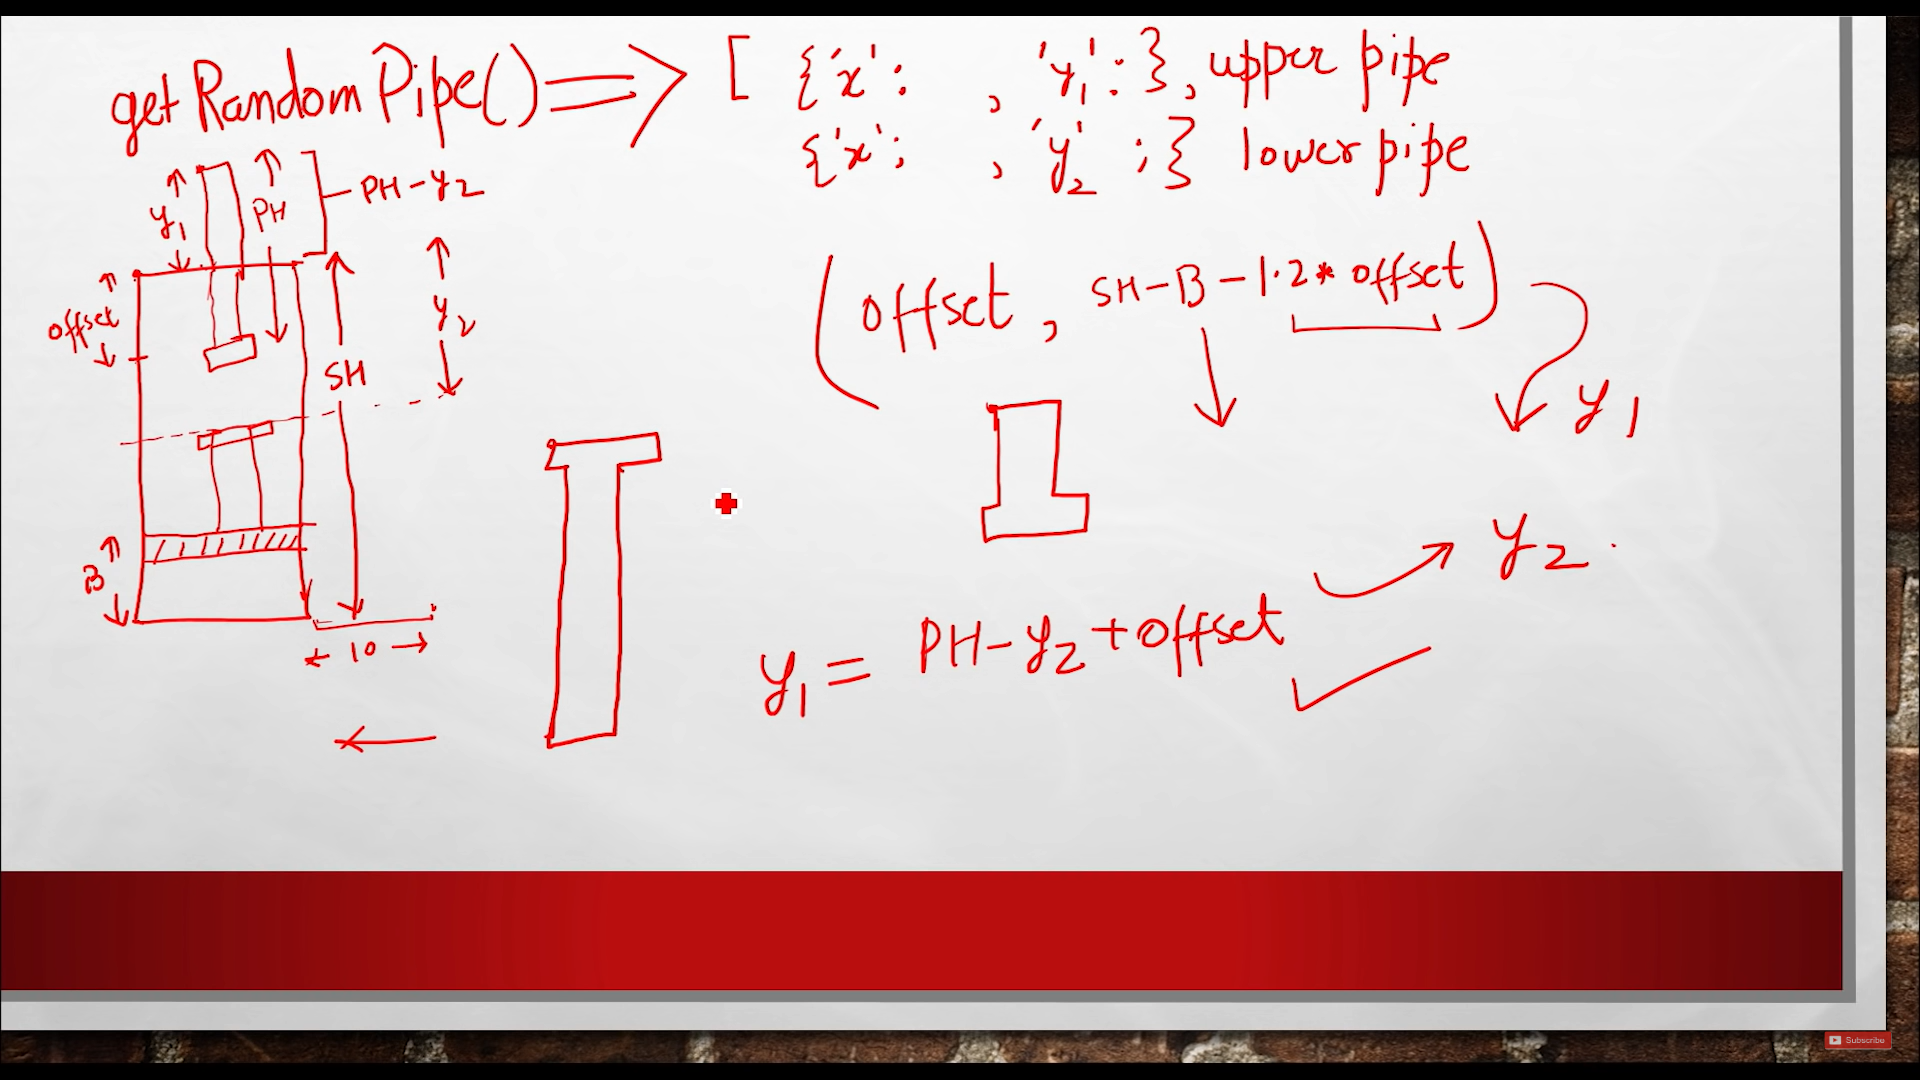 getRandomPipe() ⇒ [ {'x': , 'y1':}, upper pipe
{'x': , 'y2' :} lower pipe
PH-y2
y1
PH
offset
SH
y2
B
← 10 →
(offset, SH-B-1.2* offset)
y1
y2
y1 = PH-y2+offset
Subscribe